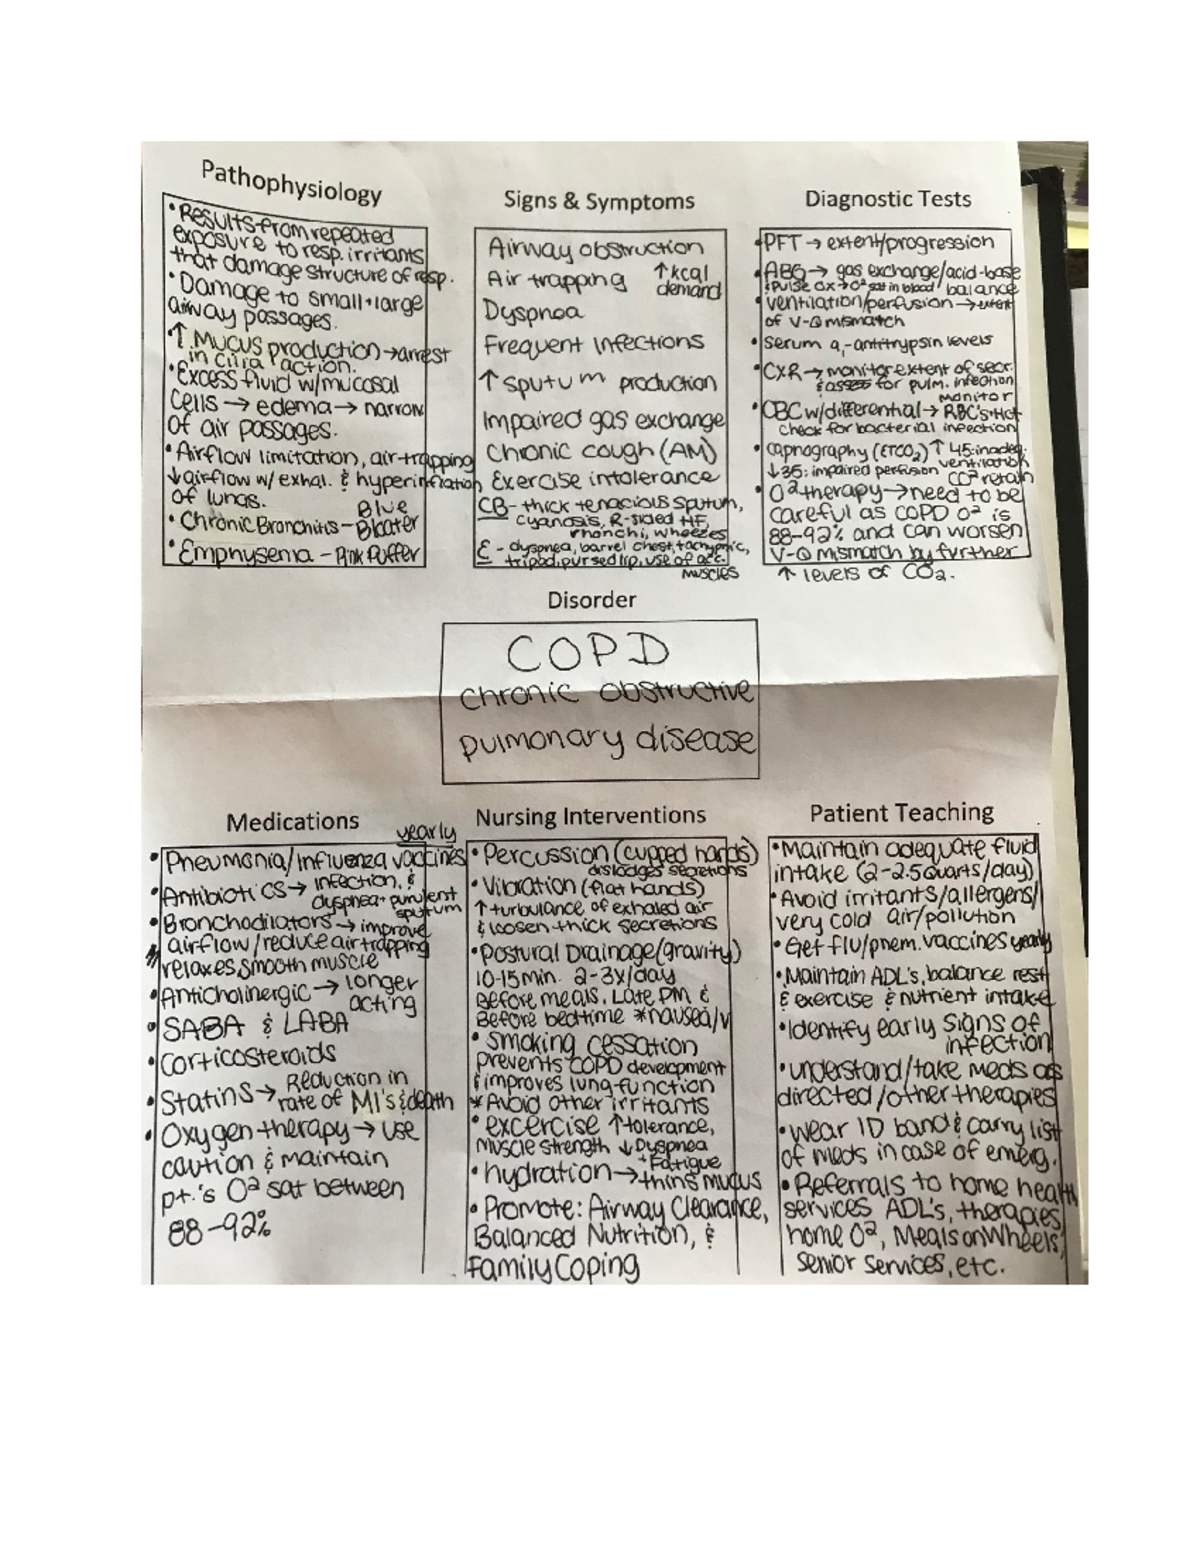 Pathophysiology
• Results from repeated
exposure to resp. irritants
that damage structure of resp.
• Damage to small + large
airway passages.
↑ Mucus production → arrest
in cilia action.
• Excess fluid w/mucosal
cells → edema → narrow
of air passages.
• Airflow limitation, air-trapping
↓ airflow w/ exhal. & hyperinflation
of lungs.
• Chronic Bronchitis - Blue Bloater
• Emphysema - Pink Puffer
Signs & Symptoms
Airway obstruction
Air trapping ↑ kcal demand
Dyspnea
Frequent Infections
↑ sputum production
Impaired gas exchange
Chronic cough (AM)
Exercise intolerance
CB - thick tenacious sputum,
cyanosis, R-sided HF,
rhonchi, wheezes
E - dyspnea, barrel chest, tachypnic,
tripod, pursed lip, use of acc.
muscles
Diagnostic Tests
• PFT → extent/progression
• ABG → gas exchange/acid-base
& Pulse Ox → O² sat in blood/ balance
• ventilation/perfusion → extent
of V-Q mismatch
• Serum a₁-antitrypsin levels
• CXR → monitor extent of secr.
& assess for pulm. infection
• CBC w/differential → monitor RBC's + Hct
check for bacterial infection
• capnography (ETCO₂) ↑ 45: inadeq. ventilation
↓ 35: impaired perfusion CO² retain
• O² therapy → need to be
careful as COPD O² is
88-92% and can worsen
V-Q mismatch by further
↑ levels of CO₂.
Disorder
COPD
chronic obstructive
pulmonary disease
Medications
• Pneumonia/influenza vaccines yearly
• Antibiotics → infection, &
dyspnea + purulent
sputum
• Bronchodilators → improve
airflow/reduce air trapping
relaxes smooth muscle
• Anticholinergic → longer
acting
• SABA & LABA
• Corticosteroids
• Statins → Reduction in
rate of MI's & death
• Oxygen therapy → use
caution & maintain
pt.'s O² sat between
88-92%
Nursing Interventions
• Percussion (cupped hands)
dislodges secretions
• Vibration (flat hands)
↑ turbulance of exhaled air
& loosen thick secretions
• Postural Drainage (gravity)
10-15min. 2-3x/day
Before meals, Late PM &
Before bedtime *nausea/v
• smoking cessation
prevents COPD development
& improves lung function
* Avoid other irritants
• excercise ↑ tolerance,
muscle strength ↓ Dyspnea
+ Fatigue
• hydration → thins mucus
• Promote: Airway Clearance,
Balanced Nutrition, &
Family Coping
Patient Teaching
• Maintain adequate fluid
intake (2-2.5 quarts/day)
• Avoid irritants/allergens/
very cold air/pollution
• Get flu/pnem. vaccines yearly
• Maintain ADL's, balance rest
& exercise & nutrient intake
• Identify early signs of
infection
• understand/take meds as
directed/other therapies
• Wear ID band & carry list
of meds in case of emerg.
• Referrals to home health
services ADL's, therapies,
home O², Meals on Wheels,
senior services, etc.